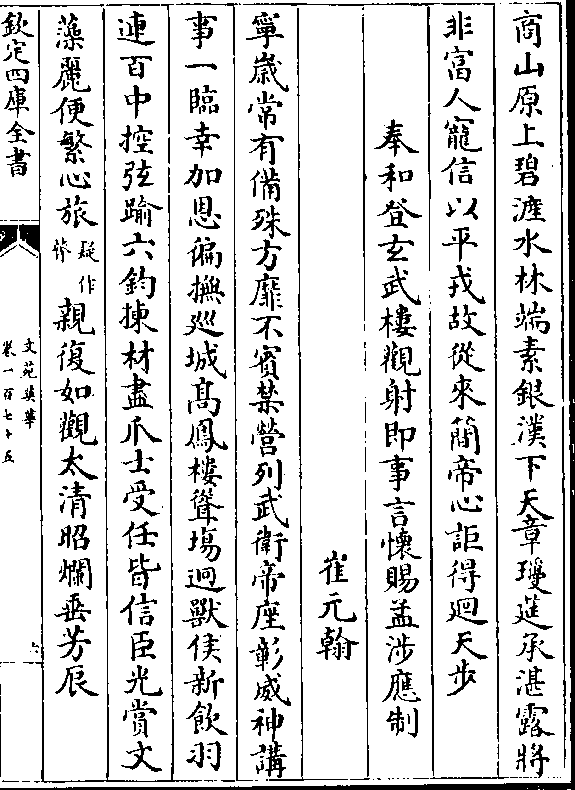 商山原上碧滻水林端素銀漢下天章瓊筵承湛露將
非富人寵信以平戎故從來簡帝心詎得迴天步
奉和登玄武樓觀射即事言懷賜孟涉應制
崔元翰
寧歲常有備殊方靡不賓禁營列武衛帝座彰威神講
事一臨幸加恩徧撫巡城髙鳳樓聳塲迥獸侯新飲羽
連百中控弦踰六鈞揀材盡爪士受任皆信臣光賞文
藻麗便繁心旅疑作膂親復如觀太清昭爛垂芳辰
欽定四庫全書
文苑英華
卷一百七十五
六